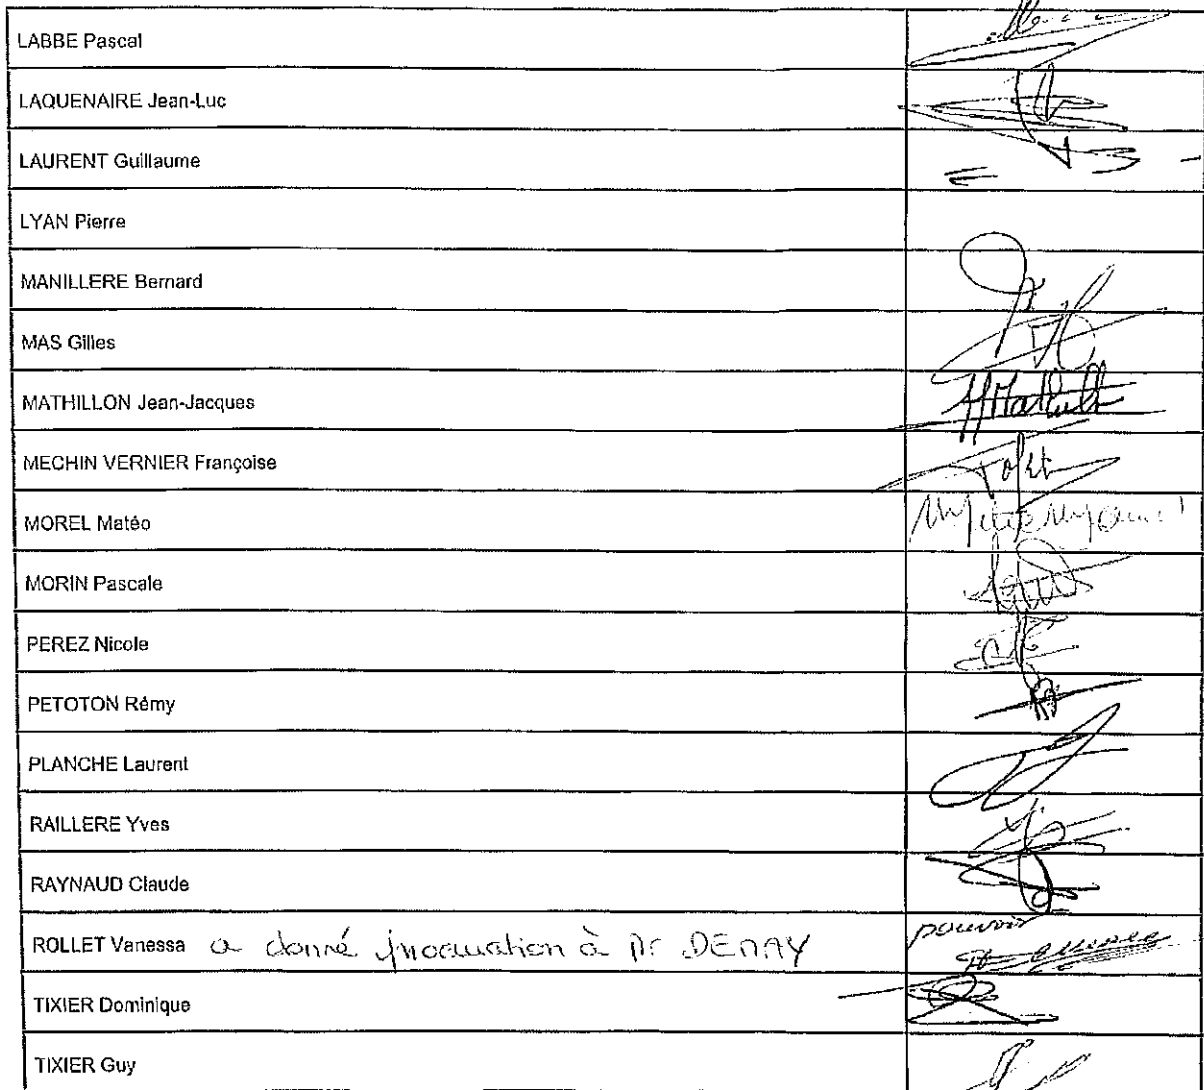 LABBE Pascal
LAQUENAIRE Jean-Luc
LAURENT Guillaume
LYAN Pierre
MANILLERE Bernard
MAS Gilles
MATHILLON Jean-Jacques
MECHIN VERNIER Françoise
MOREL Matéo
MORIN Pascale
PEREZ Nicole
PETOTON Rémy
PLANCHE Laurent
RAILLERE Yves
RAYNAUD Claude
ROLLET Vanessa a donné procuration à pouvoir
TIXIER Dominique
TIXIER Guy